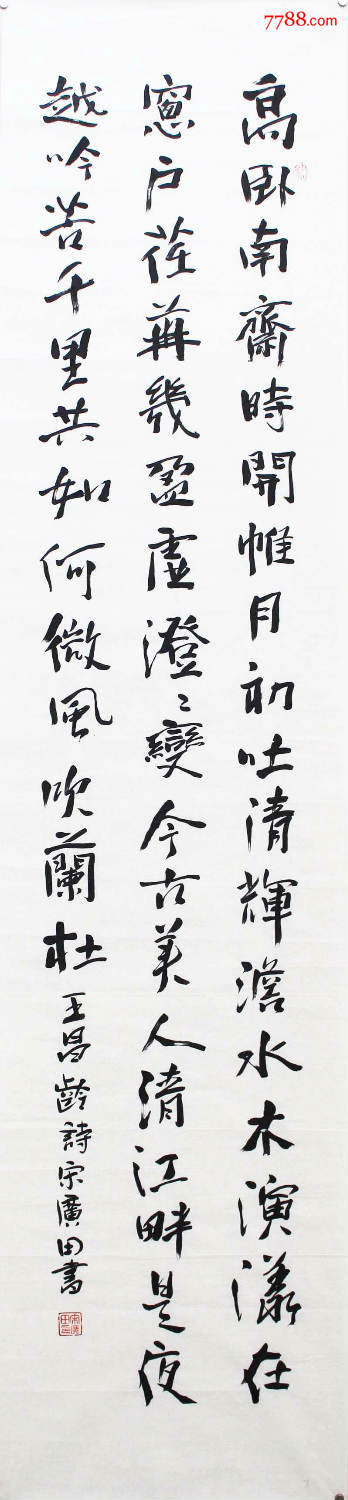 7788.com
高臥南齋時開帷月初吐清輝澹水木演漾在
窻户荏苒幾盈虛澄〻變今古美人清江畔是夜
越吟苦千里共如何微風吹蘭杜
王昌齡詩宋廣田書